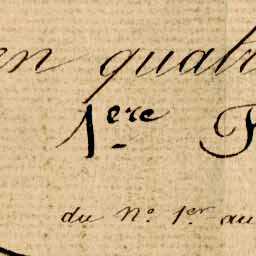 en quatr
1ere
du No. 1er au